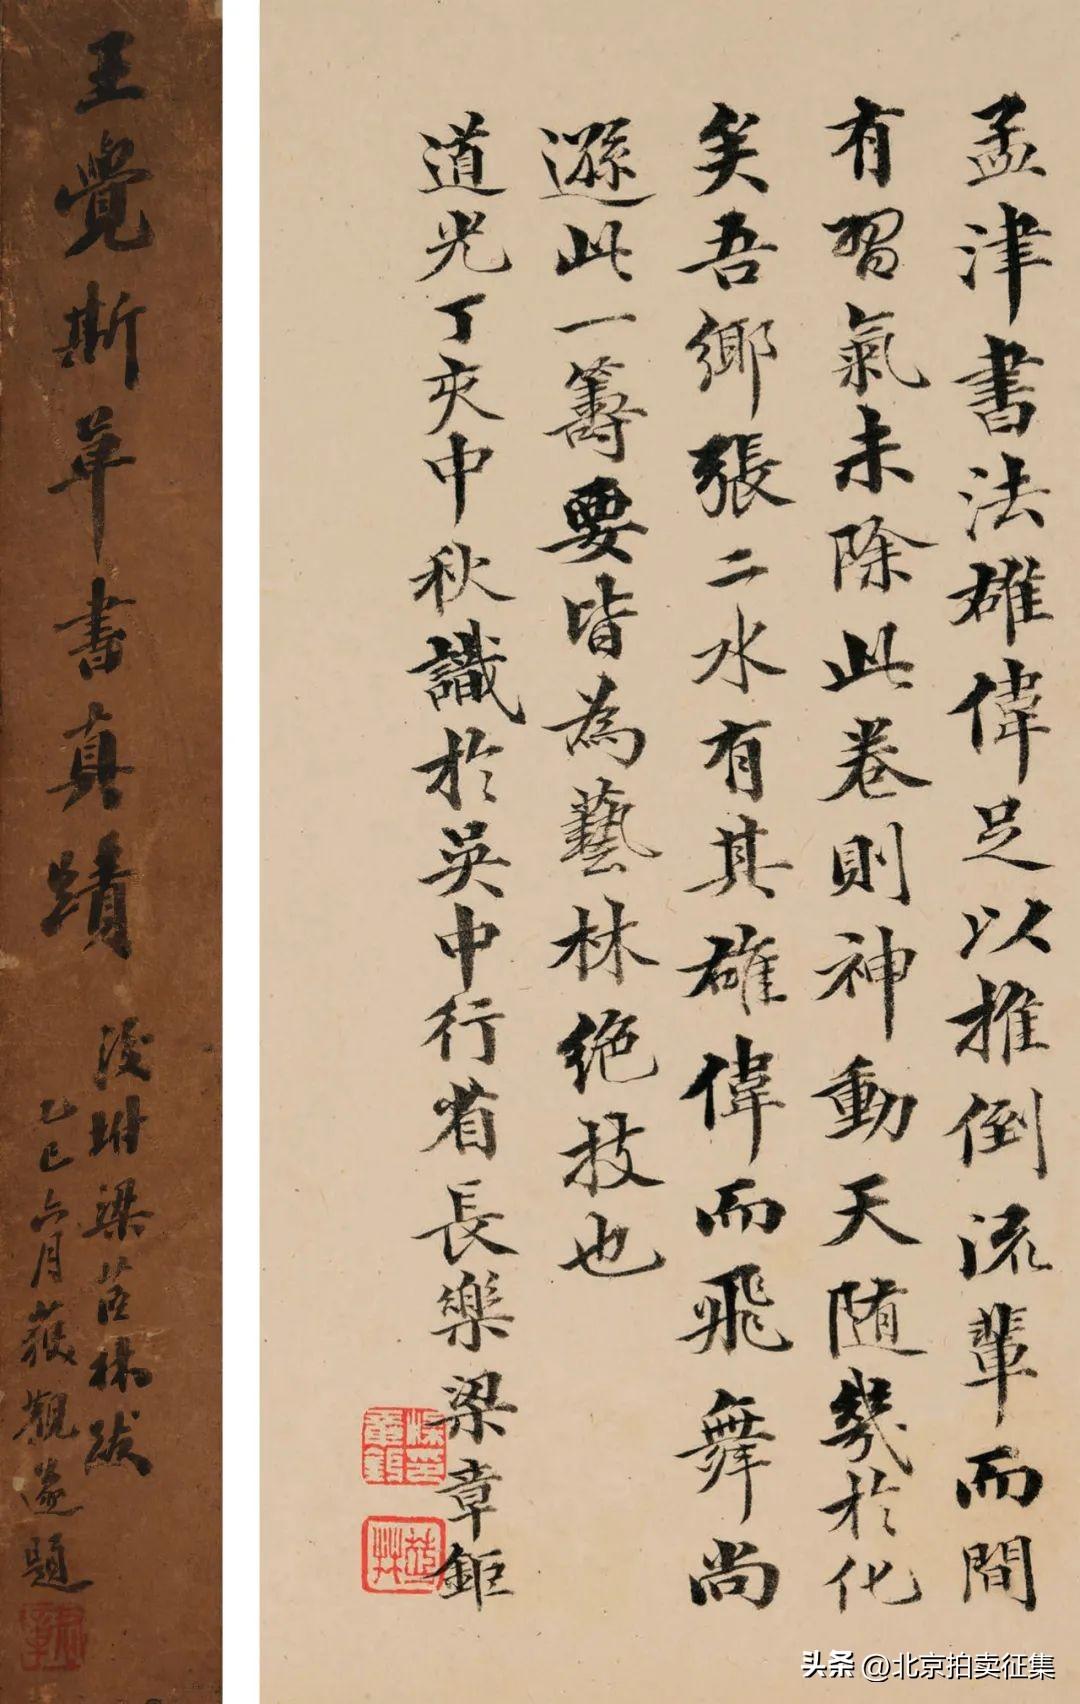 孟津書法雄偉足以推倒流輩而間
有習氣未除此卷則神動天随幾於化
矣吾鄉張二水有其雄偉而飛舞尚
遜此一籌要皆為藝林絶技也
道光丁亥中秋識於吳中行省長樂梁章鉅
梁章鉅印
王覺斯草書真蹟
後坿梁茝林跋
乙巳六月獲觀遂題
头条 @北京拍卖征集